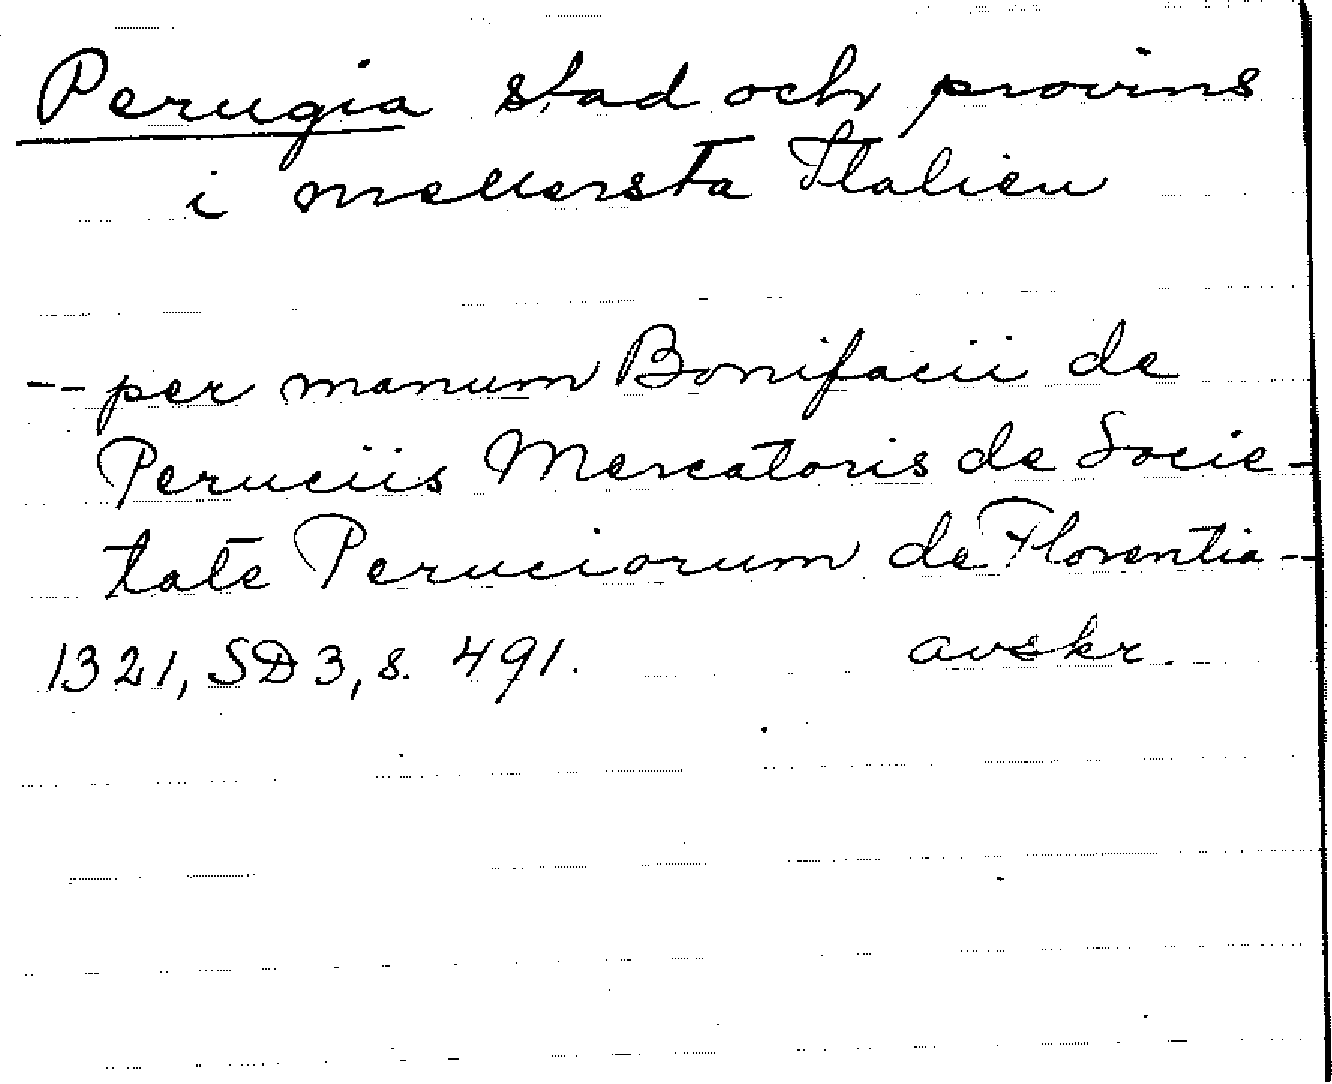 Perugia stad och provins
i mellersta Italien
-- per manum Bonifacii de
Peruciis Mercatoris de Socie-
tate Peruciorum de Florentia --
1321, SD 3, s. 491. avskr.